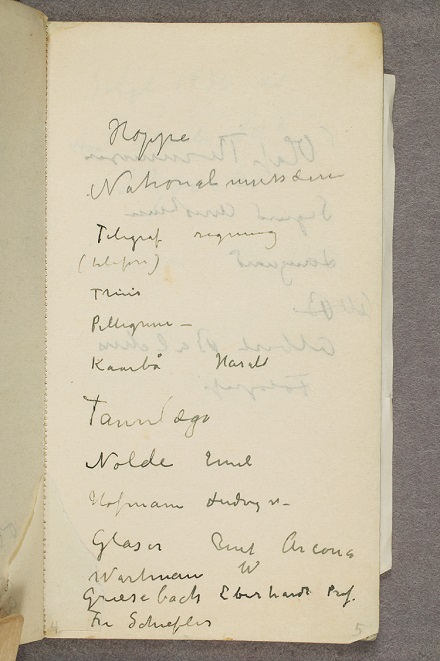 Hoppe
National
Telegraf regning
(telefon)
Pellegrini –
Kaarbø Harald
Tannlæge
Nolde Emil
Hofmann Ludvig v–
Glaser Curt Arcona
Wartmann W
Griesebach Eberhardt Prof.
Fr Schiefler
4 5